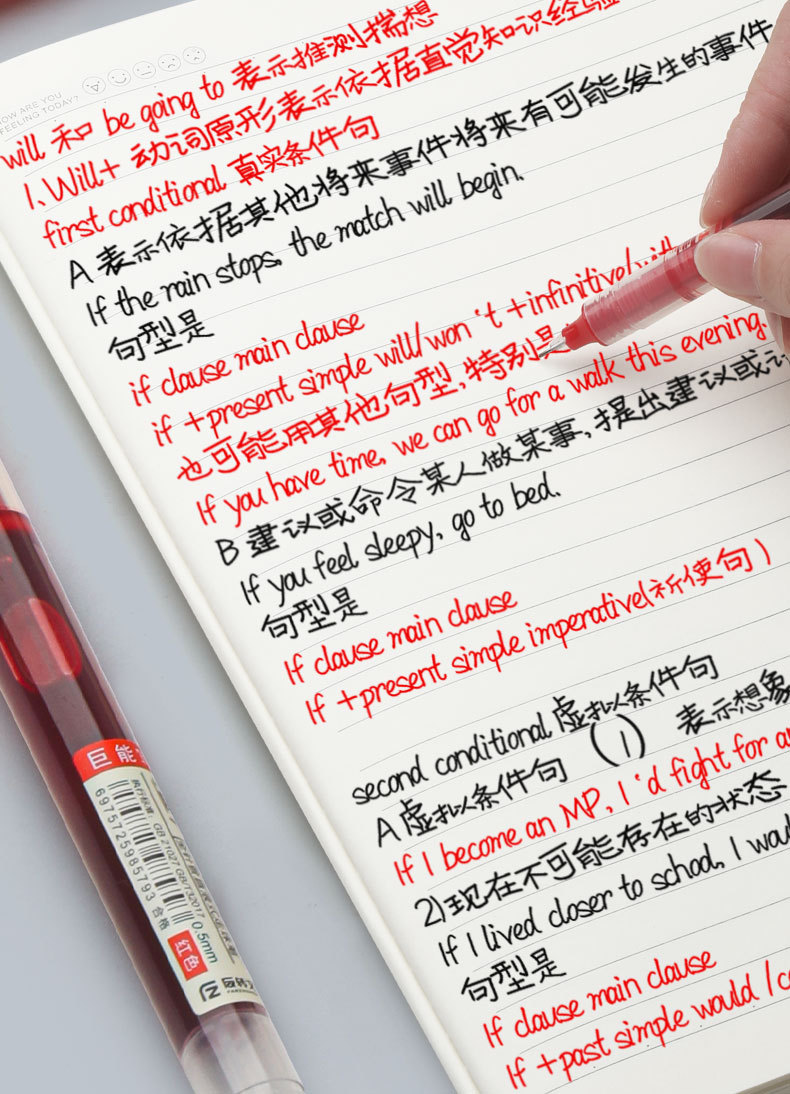 HOW ARE YOU
FEELING TODAY?
will 和 be going to 表示推测揣想
1、Will+ 动词原形表示依据直觉知识经验
first conditional 真实条件句
A 表示依据其他将来事件将来有可能发生的事件
If the rain stops, the match will begin.
句型是
if clause main clause
if +present simple will/won't +infinitive/
也可能用其他句型,特别是
If you have time, we can go for a walk this evening.
B 建议或命令某人做某事,提出建议或
If you feel sleepy, go to bed.
句型是
If clause main clause
If +present simple imperative(祈使句)
second conditional 虚拟条件句
A 虚拟条件句 (1) 表示想象
If I become an MP, I'd fight for
2)现在不可能存在的状态
If I lived closer to school, I
句型是
If clause main clause
If +past simple would /
巨能
执行标准: GB 21027 GB/T32017
6975725985793 合格
0.5mm
红色